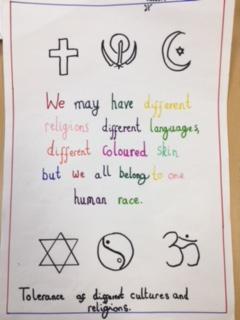 We may have different
religions different languages,
different coloured skin
but we all belong to one
human race.
Tolerance of different cultures and
religions.